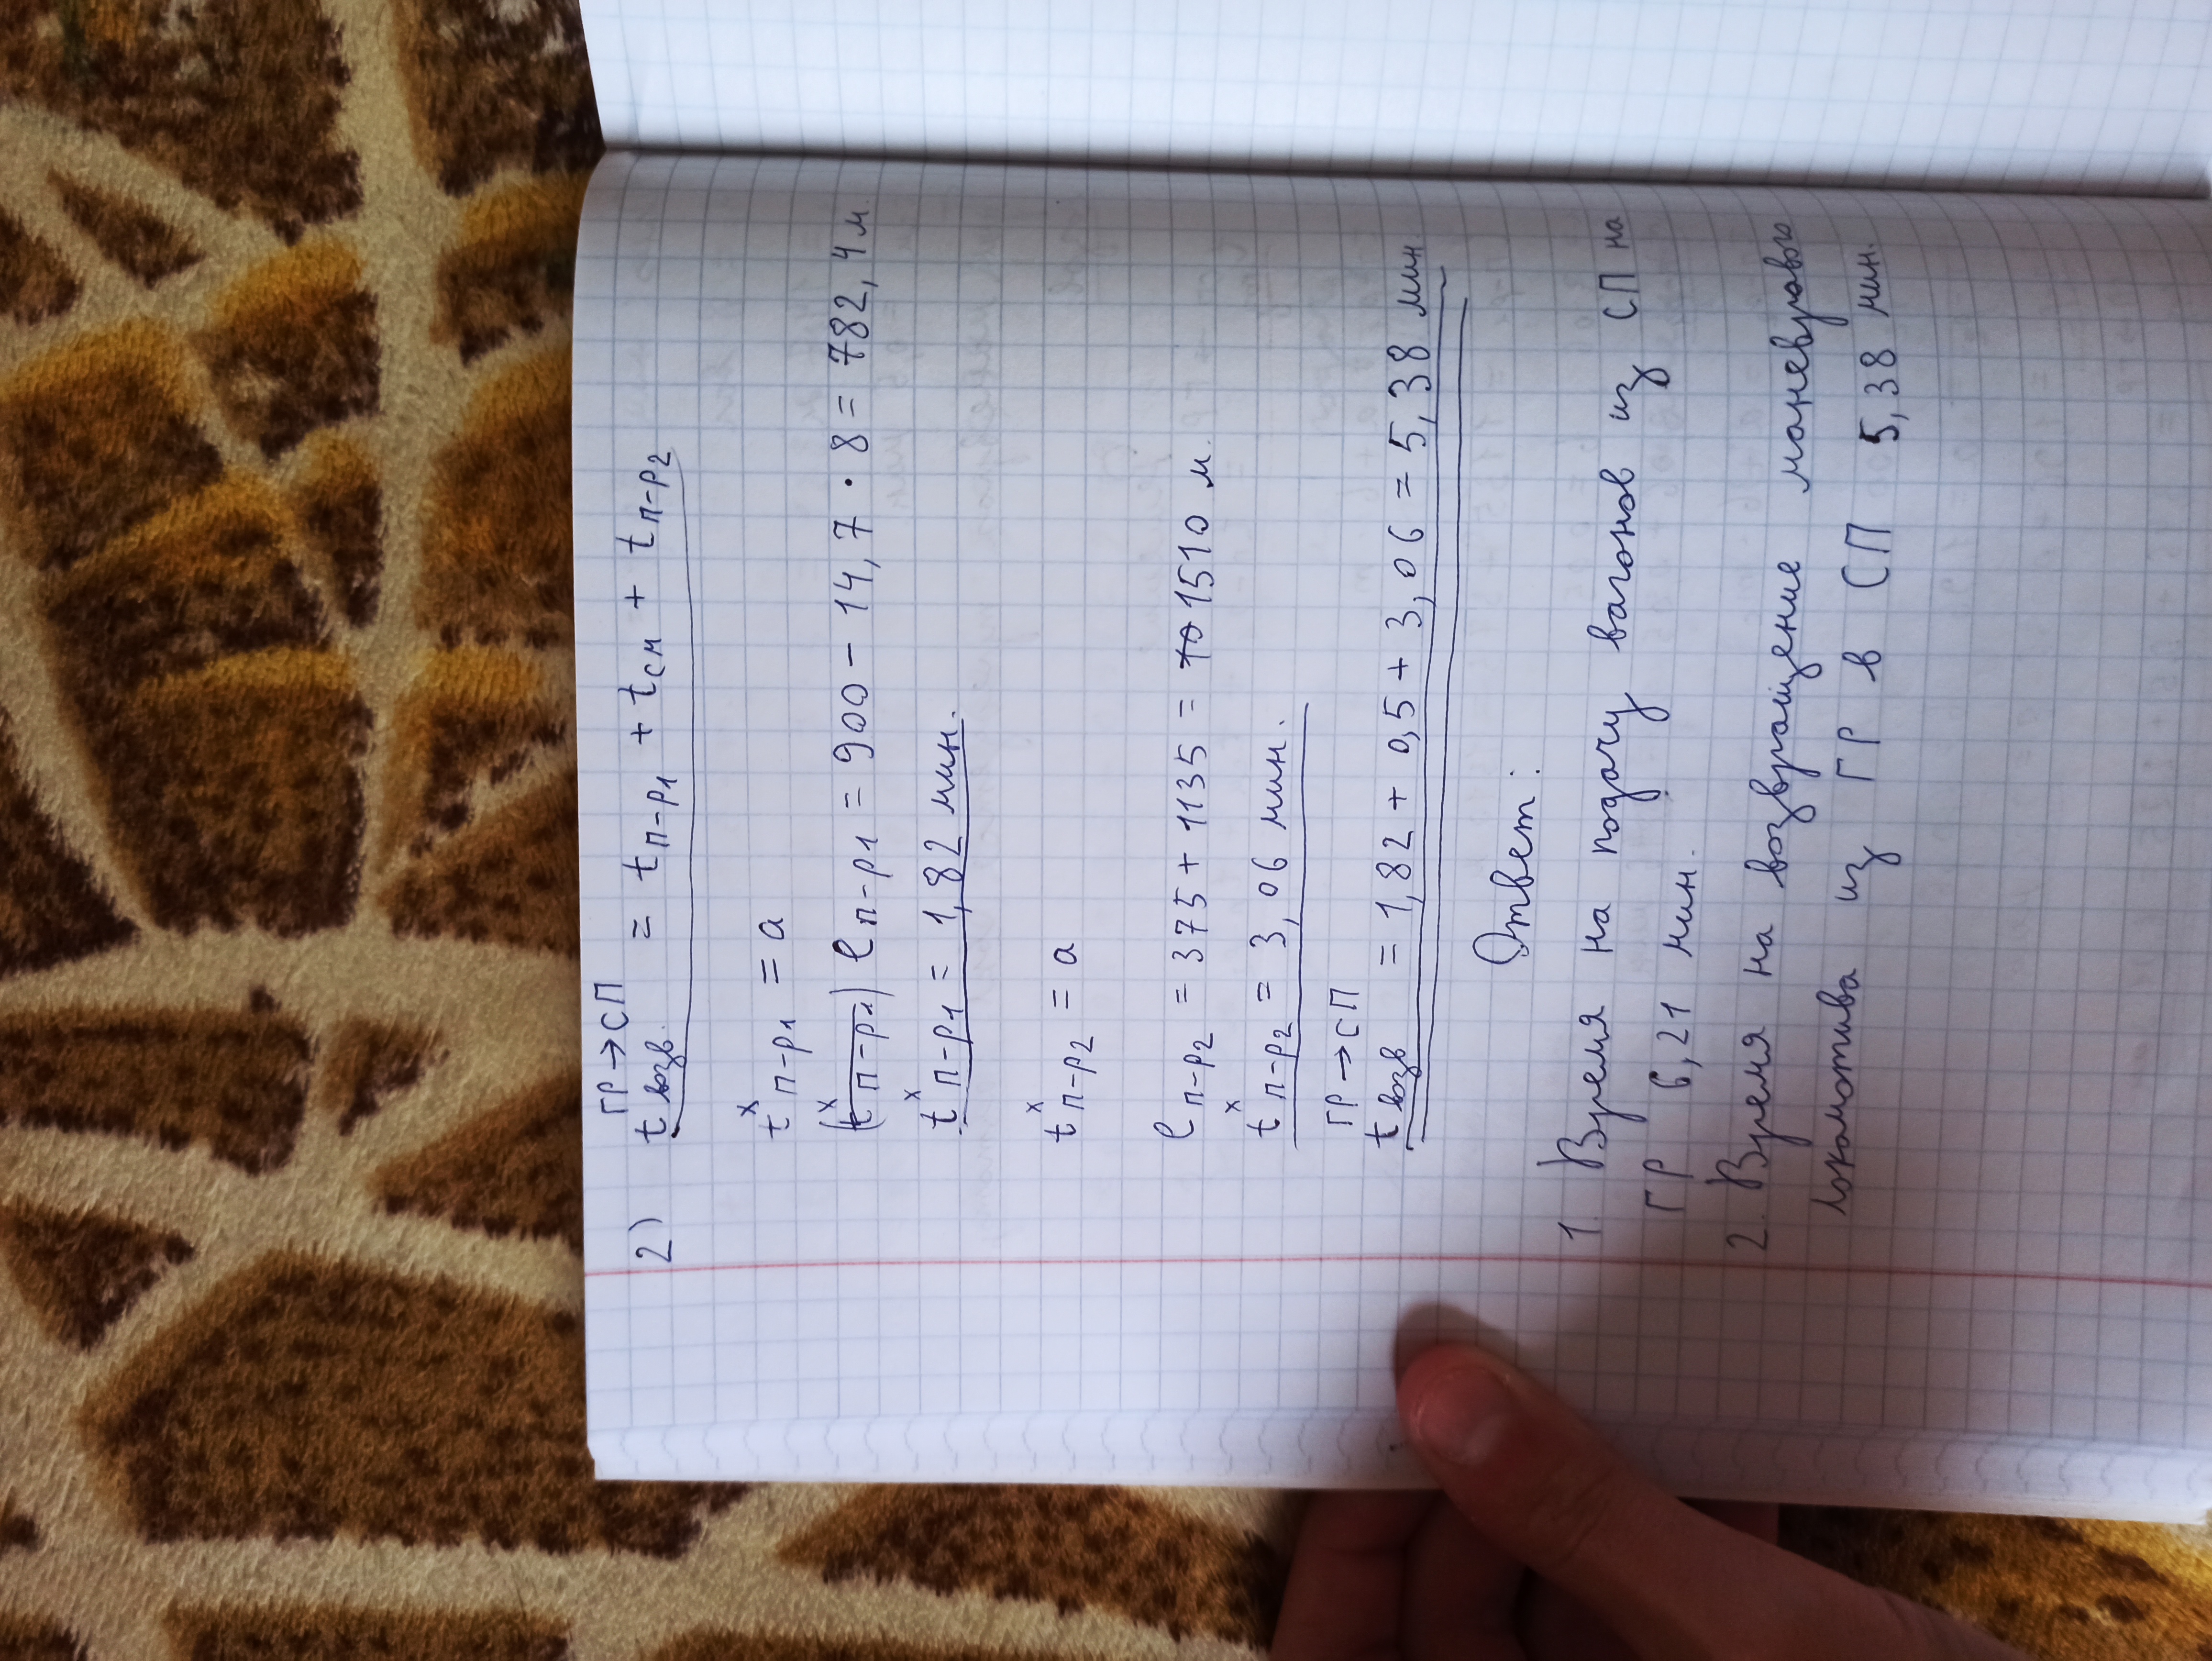 2) t возв. ГР→СП = t п-р1 + t см + t п-р2
tˣ п-р1 = a
(tˣ п-р1) l п-р1 = 900 - 14,7 · 8 = 782,4 м.
tˣ п-р1 = 1,82 мин.
tˣ п-р2 = a
l п-р2 = 375 + 1135 = 1510 м.
tˣ п-р2 = 3,06 мин.
t возв ГР→СП = 1,82 + 0,5 + 3,06 = 5,38 мин.
Ответ:
1. Время на подачу вагонов из СП на
ГР 6,21 мин.
2. Время на возвращение маневрового
локомотива из ГР в СП 5,38 мин.